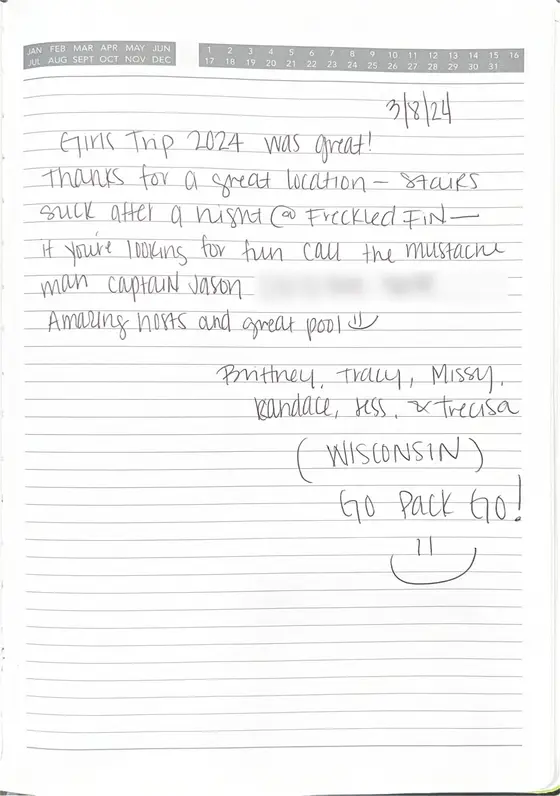 JAN FEB MAR APR MAY JUN
JUL AUG SEPT OCT NOV DEC
1 2 3 4 5 6 7 8 9 10 11 12 13 14 15 16
17 18 19 20 21 22 23 24 25 26 27 28 29 30 31
3/8/24
Girls Trip 2024 was great!
Thanks for a great location - stairs
suck after a night @ Freckled Fin —
if you're looking for fun call the mustache
man captain Jason
Amazing hosts and great pool
Brittney, Tracy, Missy,
Kandace, Jess, & Trecisa
(WISCONSIN)
Go Pack Go!